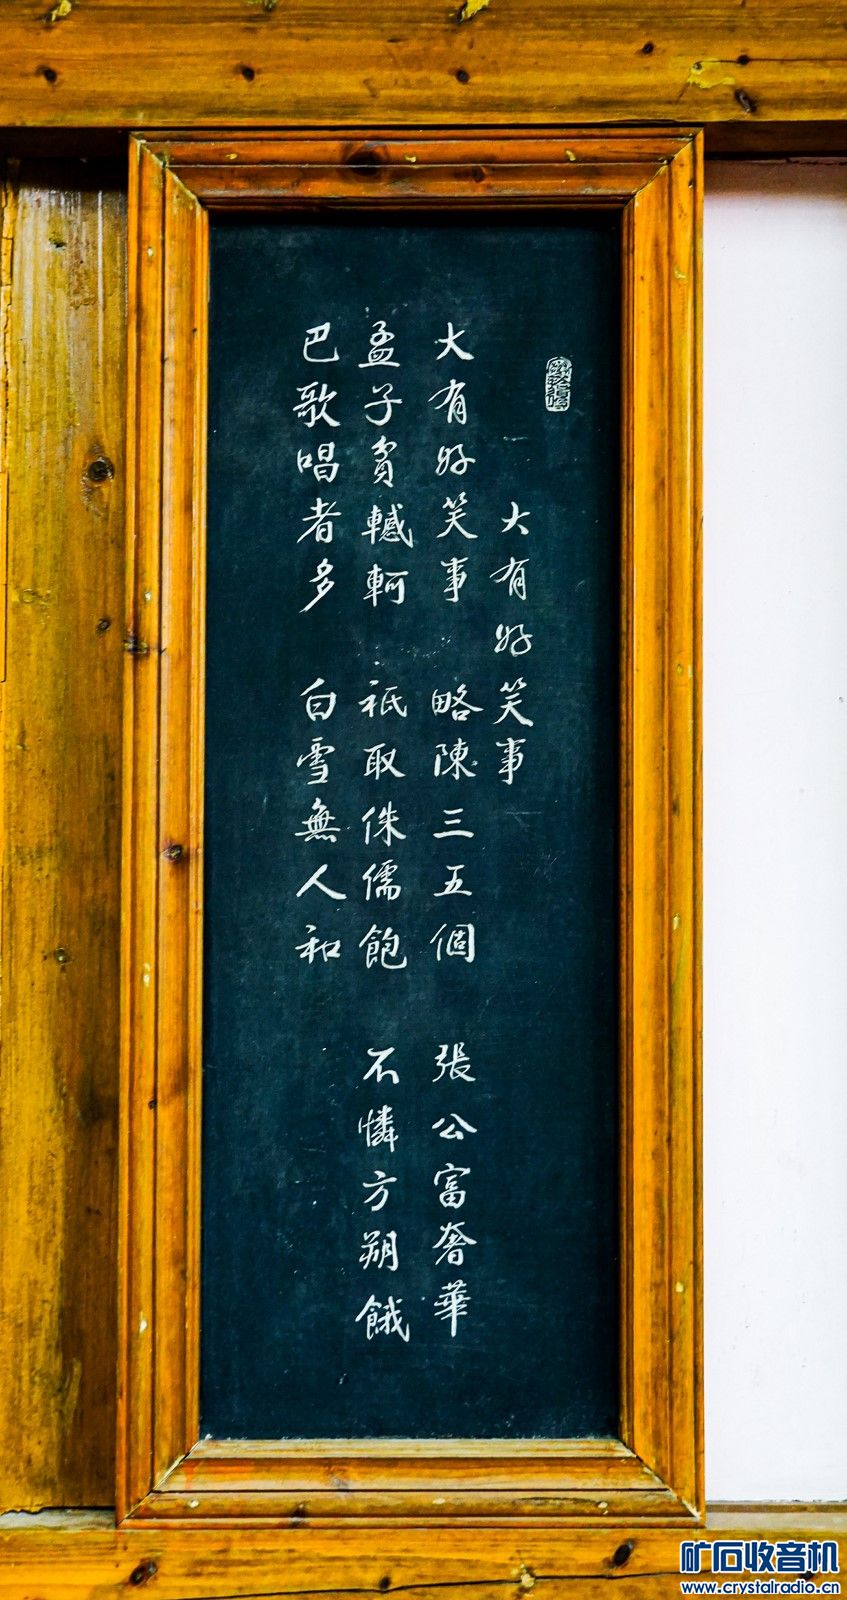 大有好笑事
大有好笑事 略陳三五個 張公富奢華
孟子貧轗軻 祇取侏儒飽 不憐方朔餓
巴歌唱者多 白雪無人和
矿石收音机
www.crystalradio.cn